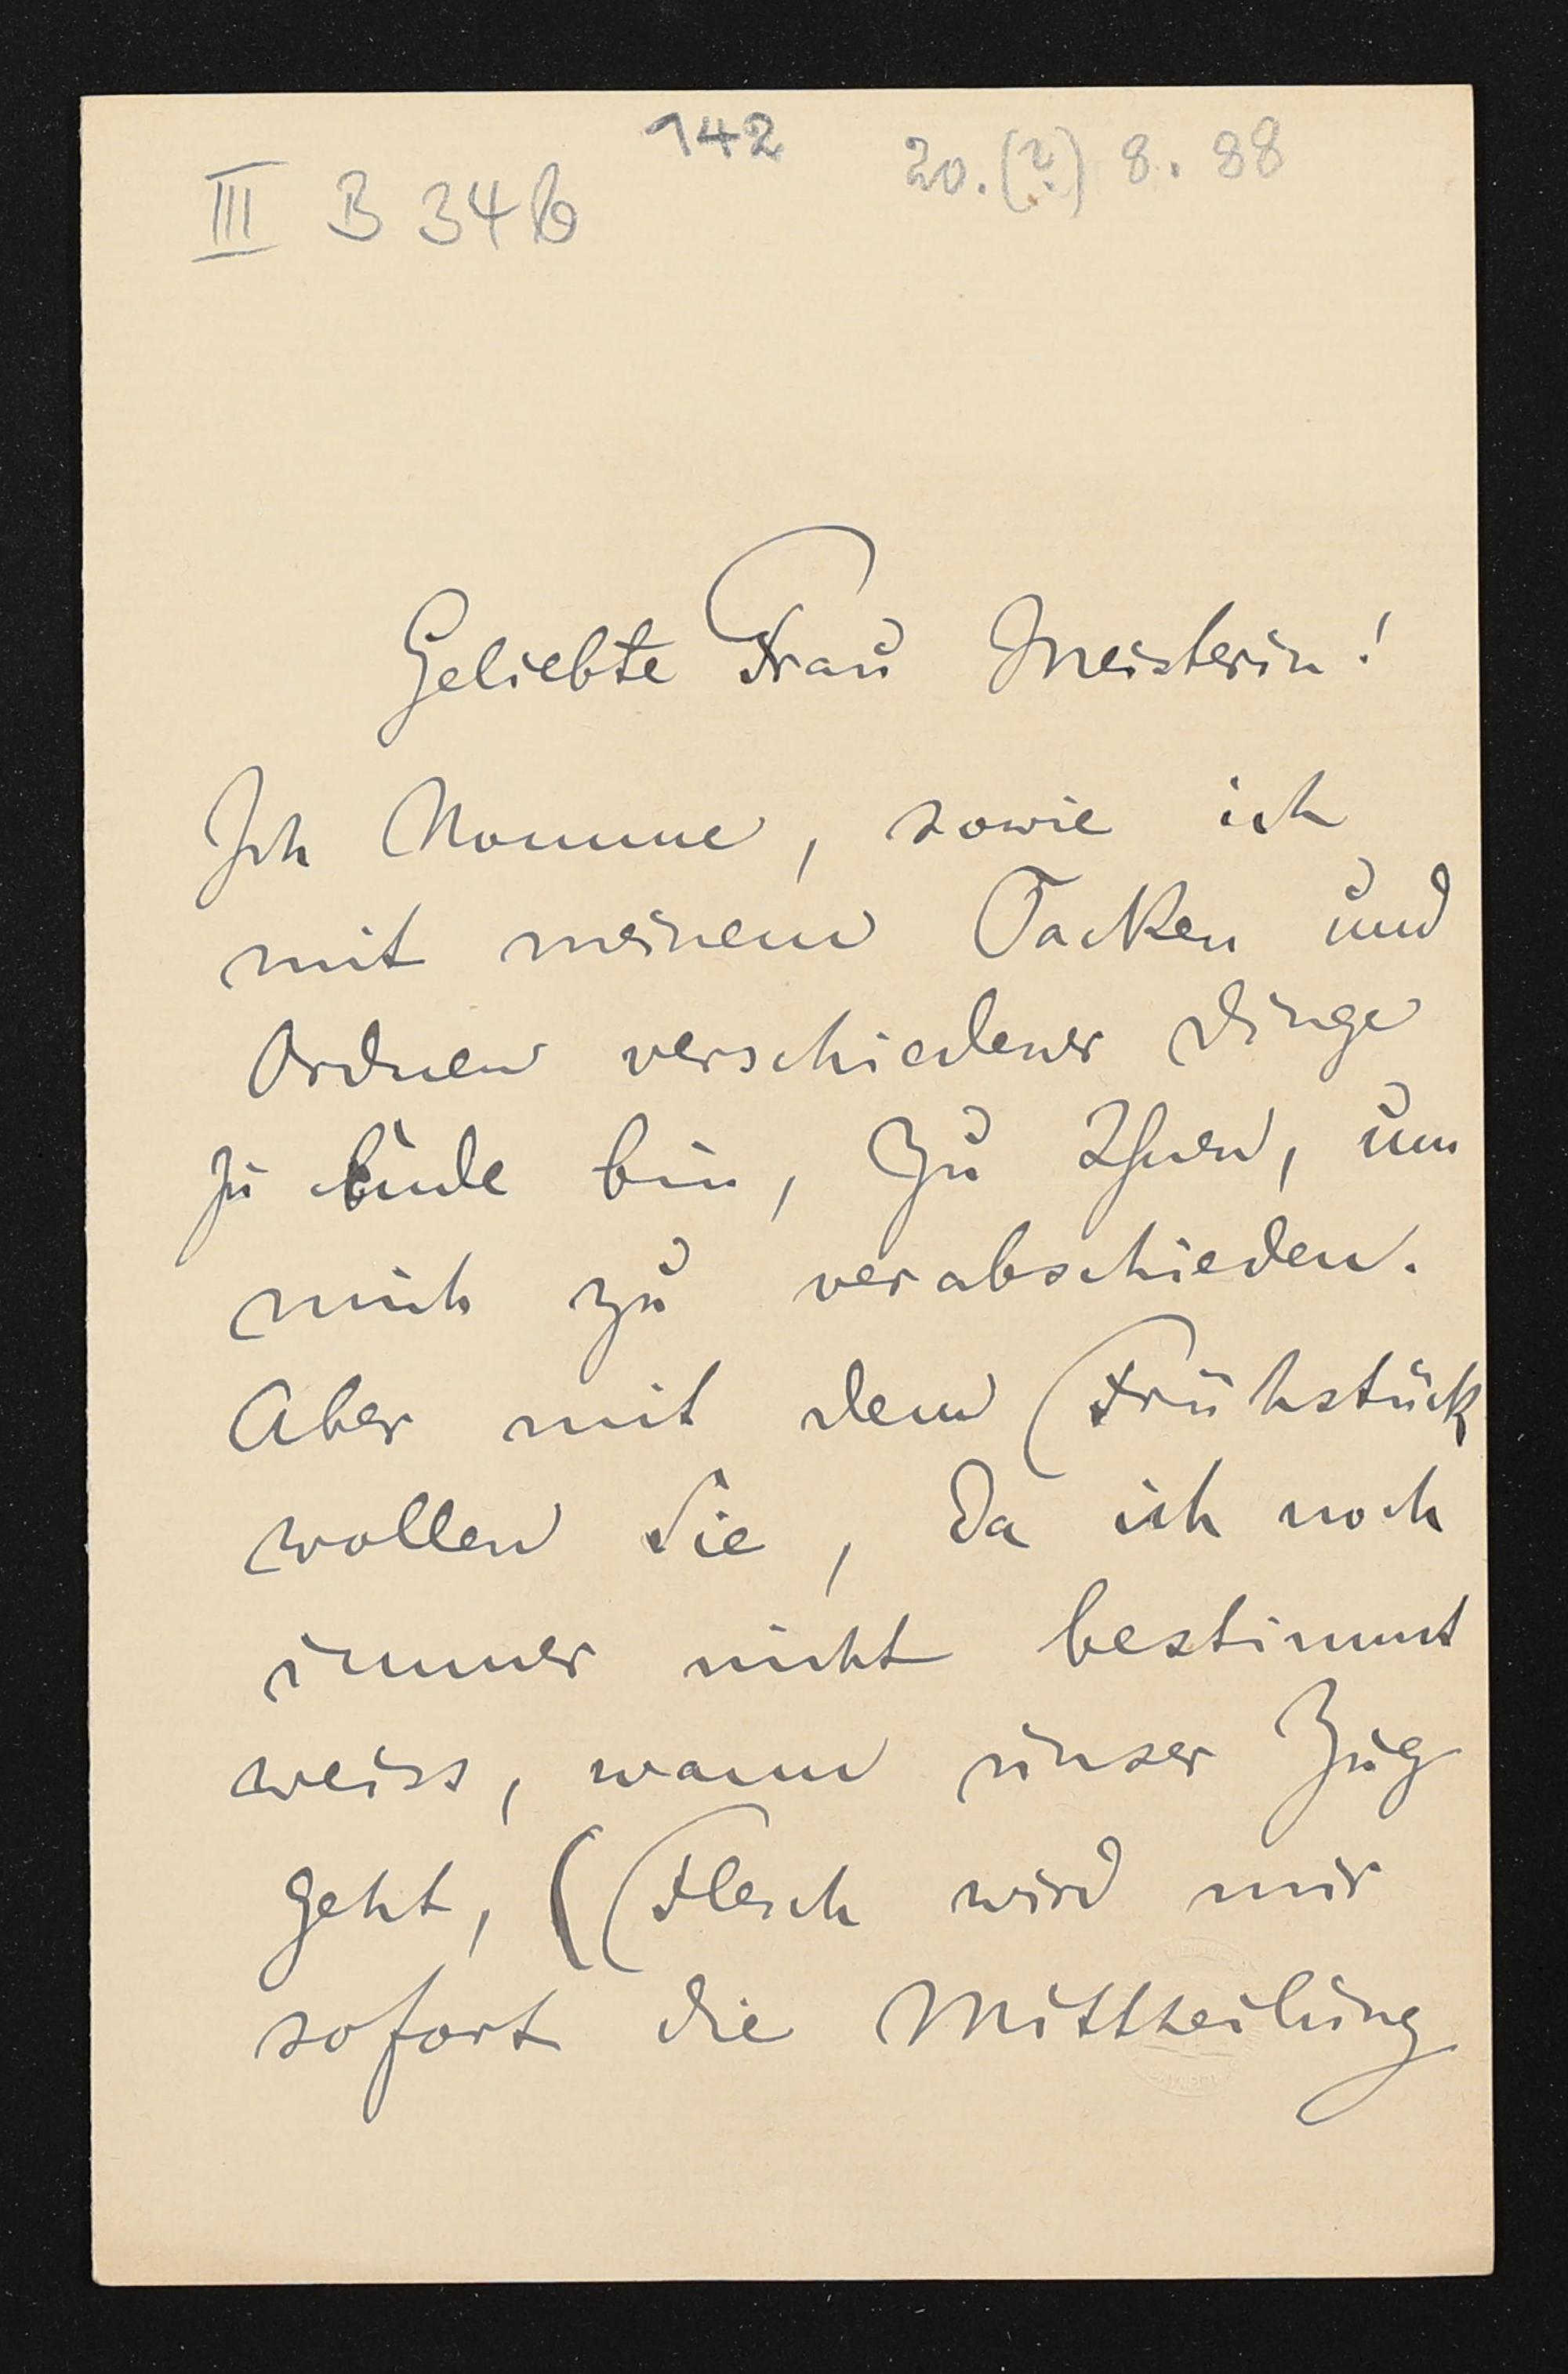 142
20. (?) 8. 88
III B 34b
Geliebte Frau Meisterin!
Ich komme, sowie ich
mit meinem Packen und
Ordnen verschiedener Dinge
zu Ende bin, zu Ihnen, um
mich zu verabschieden.
Aber mit dem Frühstück
wollen Sie, da ich noch
immer nicht bestimmt
weiss, wann unser Zug
geht, (Flesch wird mir
sofort die Mittheilung